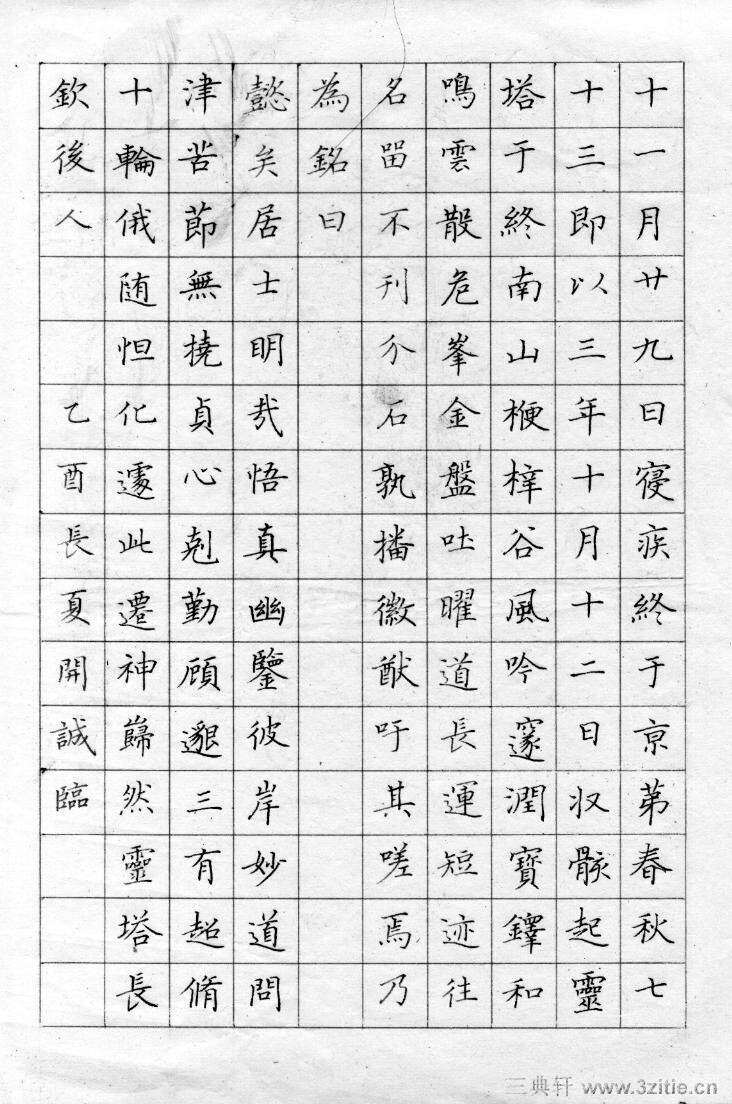 十一月廿九日寑疾終于京苐春秋七
十三即以三年十月十二日収骸起靈
塔于終南山楩梓谷風吟邃澗寶鐸和
鳴雲散危峯金盤吐曜道長運短迹往
名留不刊介石孰播徽猷吁其嗟焉乃
為銘曰
懿矣居士明㢤悟真幽鑒彼岸妙道問
津苦節無撓貞心剋勤顧邈三有超脩
十輪俄随怛化遽此遷神巋然靈塔長
欽後人 乙酉長夏開誠臨
三典轩 www.3zitie.cn